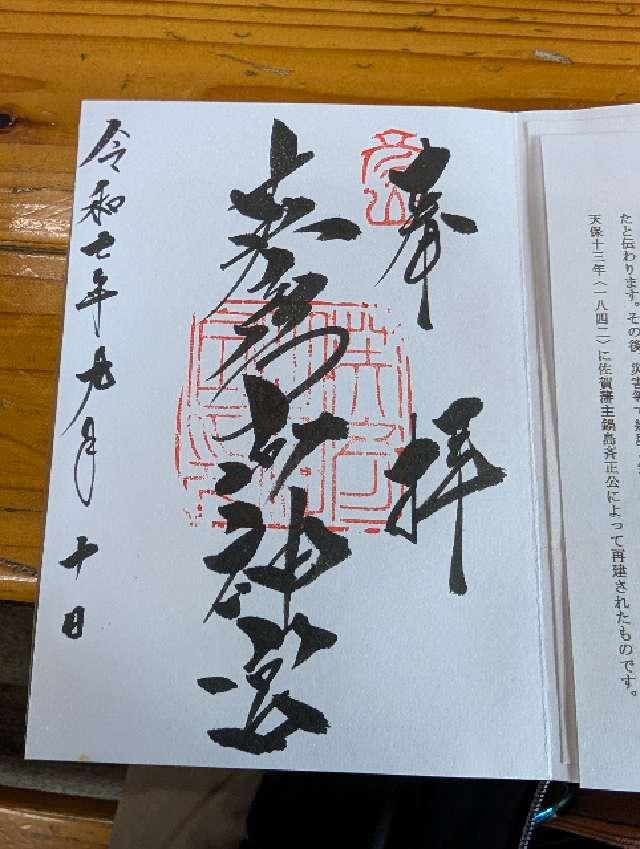 たと伝わります。その後、災害等で
天保十三年〈一八四二〉に佐賀藩主鍋島斉正公によって再建されたものです。
奉拝
英彦山神宮
令和七年九月十日